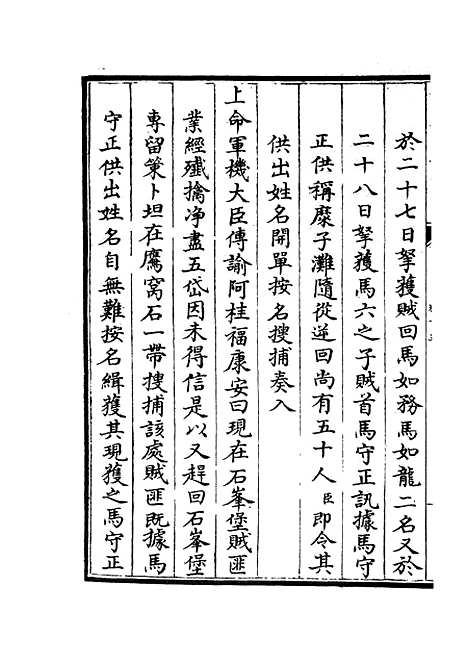 於二十七日拏獲賊回馬如務馬如龍二名又於
二十八日拏獲馬六之子賊首馬守正訊據馬守
正供稱糜子灘隨從逆回尚有五十人臣即令其
供出姓名開單按名搜捕奏入
上命軍機大臣傳諭阿桂福康安曰現在石峯堡賊匪
業經殲擒净盡五岱因未得信是以又趕回石峯堡
專留策卜坦在鷹窝石一帶搜捕該處賊匪既據馬
守正供出姓名自無難按名緝獲其現獲之馬守正